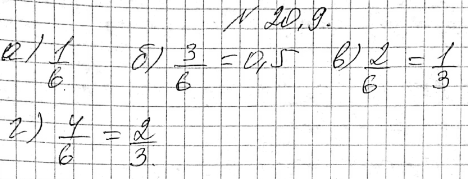 № 20,9.
а) 1/6. б) 3/6 = 0,5 в) 2/6 = 1/3
г) 4/6 = 2/3.